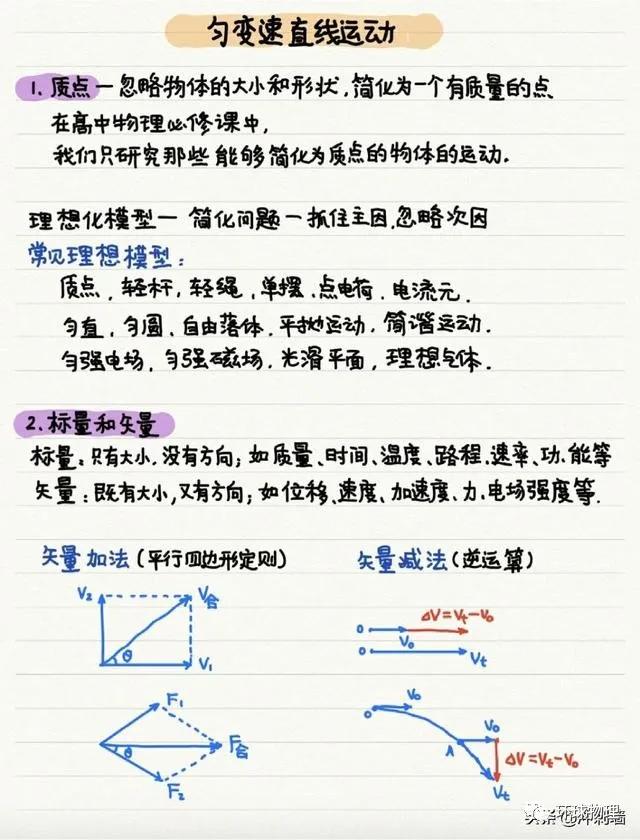 匀变速直线运动
1. 质点—忽略物体的大小和形状,简化为一个有质量的点
在高中物理必修课中,
我们只研究那些能够简化为质点的物体的运动.
理想化模型—简化问题—抓住主因,忽略次因
常见理想模型:
质点、轻杆,轻绳,单摆、点电荷、电流元.
匀直,匀圆、自由落体、平抛运动,简谐运动.
匀强电场,匀强磁场,光滑平面,理想气体.
2.标量和矢量
标量:只有大小,没有方向;如质量、时间、温度、路程、速率、功、能等
矢量:既有大小,又有方向;如位移、速度、加速度、力、电场强度等.
矢量加法(平行四边形定则) 矢量减法(逆运算)
V₂ V合
θ V₁
ΔV=Vt-V₀
0 V₀
0 Vt
F₁
θ F合
F₂
0 V₀
A V₀
ΔV=Vt-V₀
Vt
环球物理
头条@冲刺喵